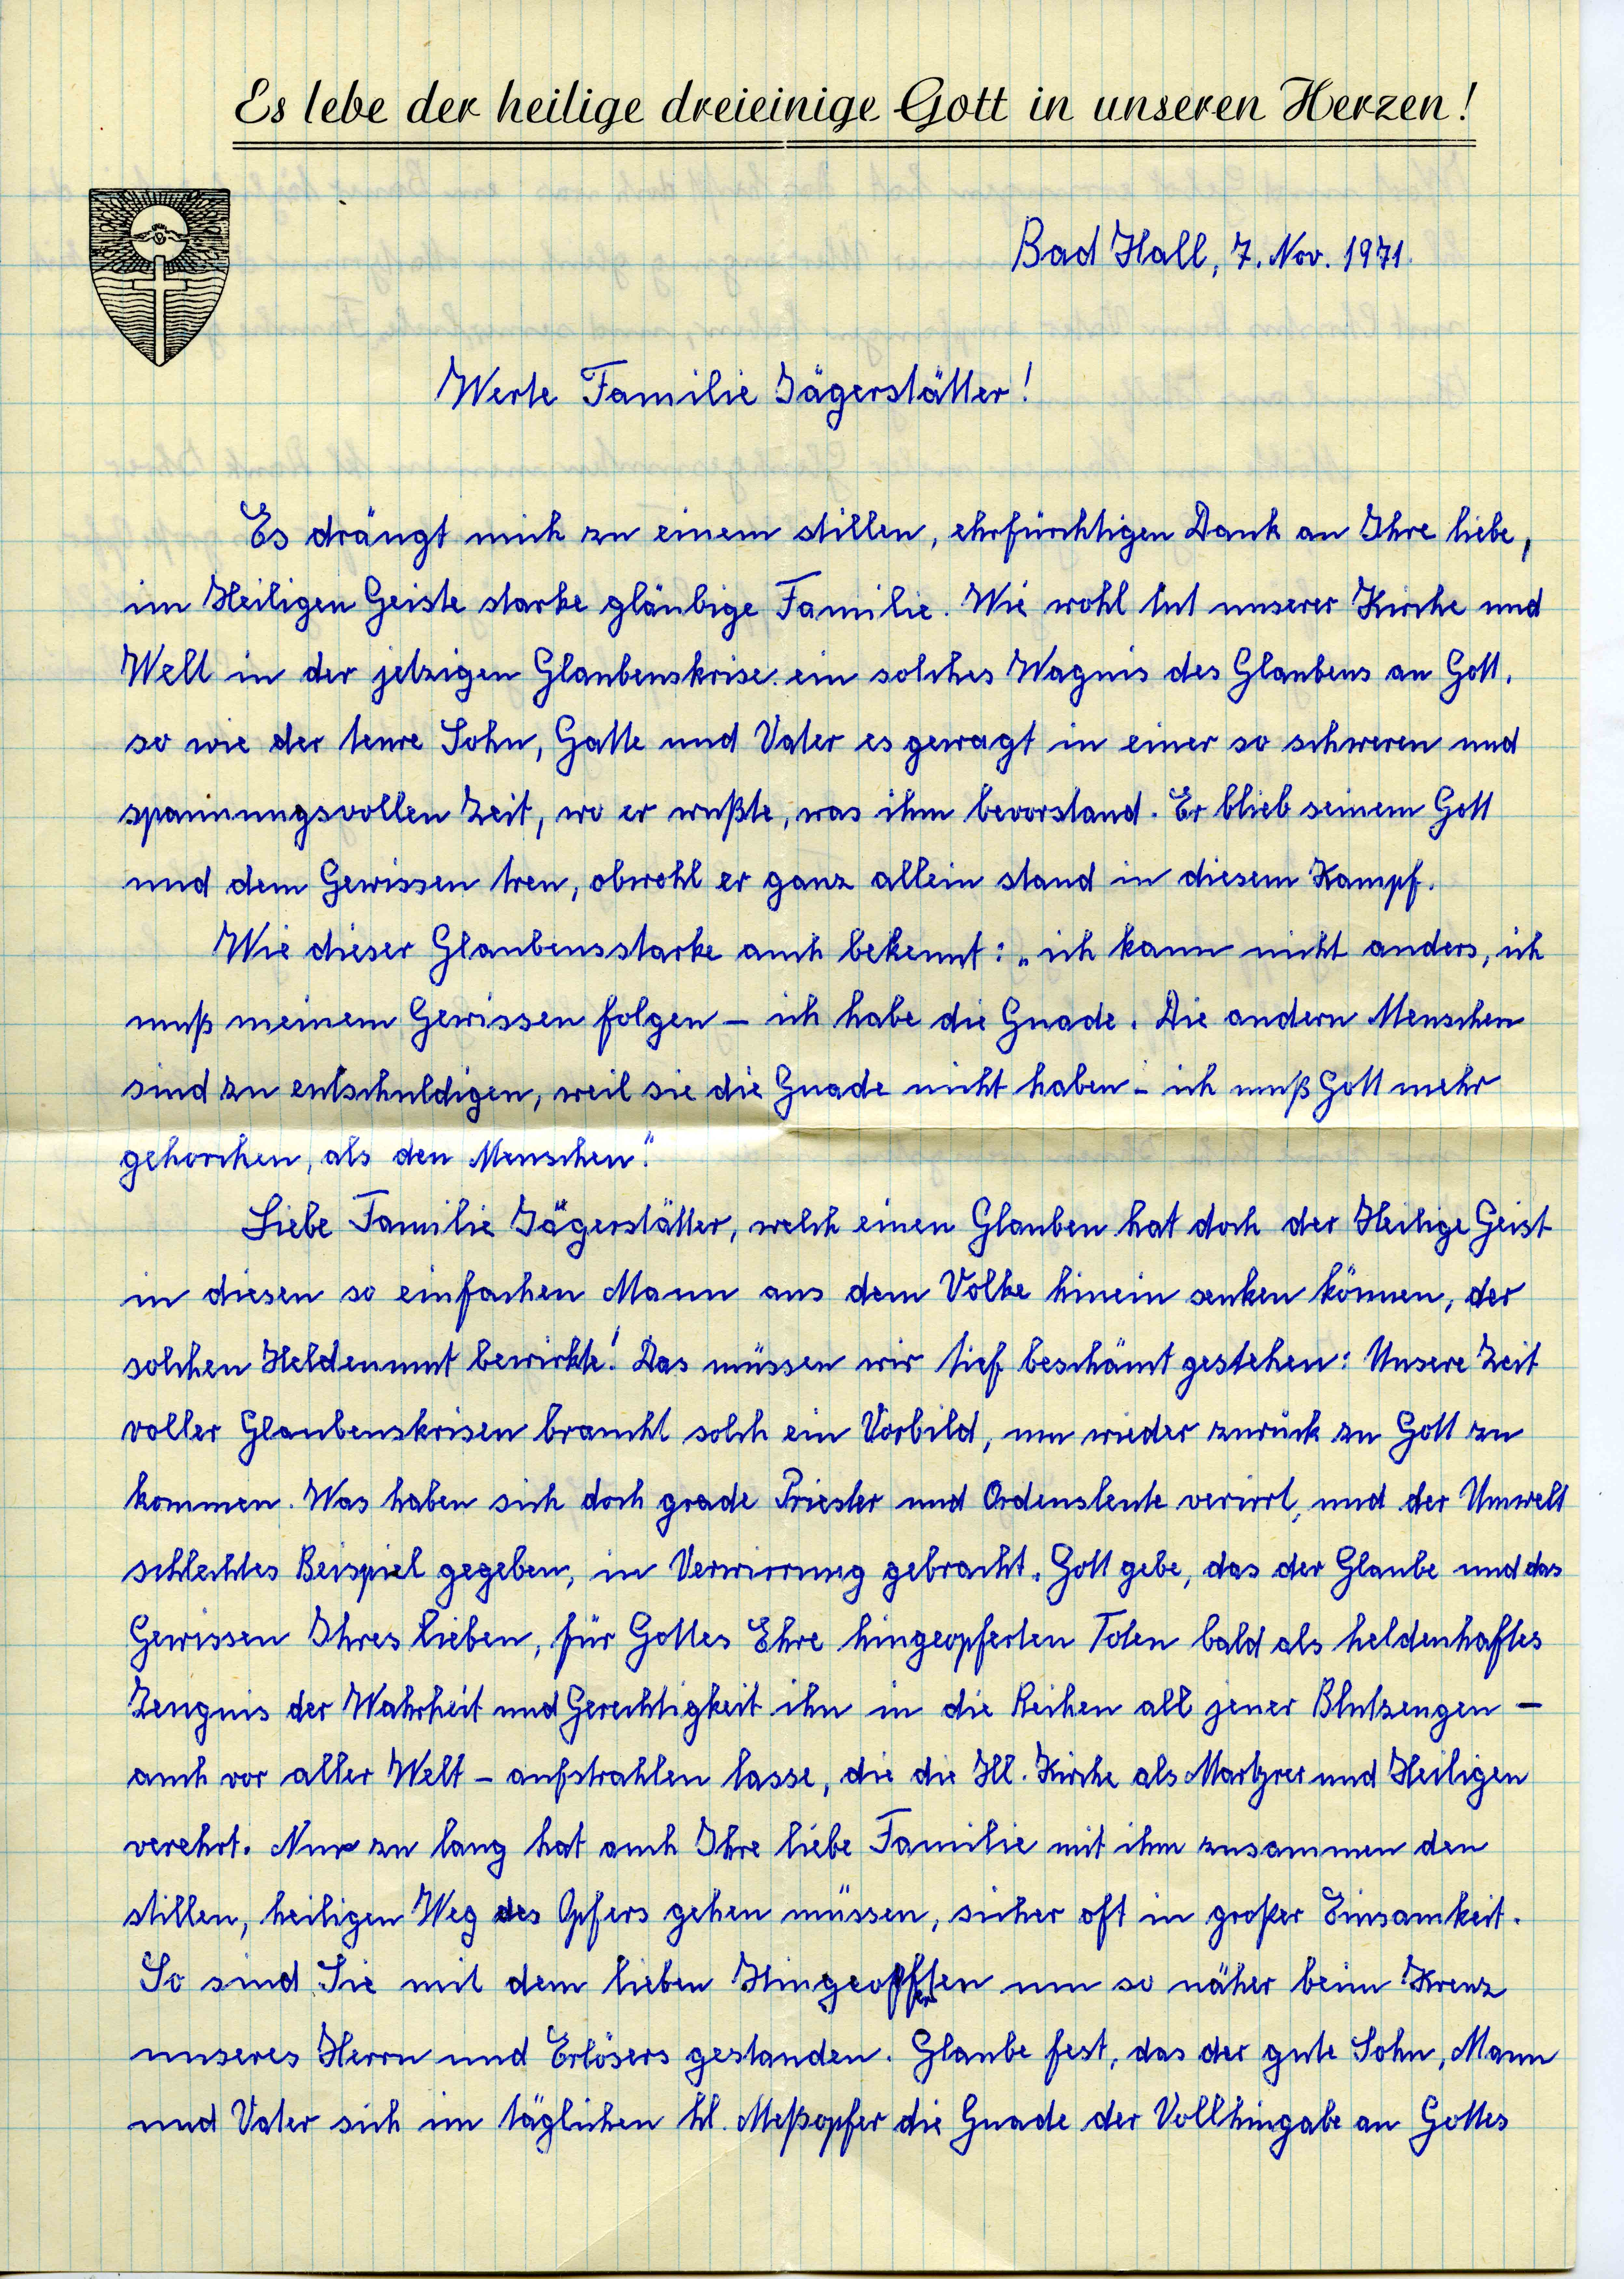 Es lebe der heilige dreieinige Gott in unseren Herzen!
Bad Hall, 7. Nov. 1971.
Werte Familie Jägerstätter!
Es drängt mich zu einem stillen, ehrfürchtigen Dank an Ihre liebe,
im Heiligen Geiste starke gläubige Familie. Wie wohl tut unserer Kirche und
Welt in der jetzigen Glaubenskrise ein solches Wagnis des Glaubens an Gott,
so wie der teure Sohn, Gatte und Vater es gewagt in einer so schweren und
spannungsvollen Zeit, wo er wußte, was ihm bevorstand. Er blieb seinem Gott
und dem Gewissen treu, obwohl er ganz allein stand in diesem Kampf.
Wie dieser Glaubensstarke auch bekennt: „ich kann nicht anders, ich
muß meinem Gewissen folgen – ich habe die Gnade. Die andern Menschen
sind zu entschuldigen, weil sie die Gnade nicht haben – ich muß Gott mehr
gehorchen, als den Menschen."
Liebe Familie Jägerstätter, welch einen Glauben hat doch der Heilige Geist
in diesen so einfachen Mann aus dem Volke hinein senken können, der
solchen Heldenmut bewirkte! Das müssen wir tief beschämt gestehen: Unsere Zeit
voller Glaubenskrisen braucht solch ein Vorbild, um wieder zurück zu Gott zu
kommen. Was haben sich doch grade Priester und Ordensleute verirrt, und der Umwelt
schlechtes Beispiel gegeben, in Verwirrung gebracht. Gott gebe, das der Glaube und das
Gewissen Ihres lieben, für Gottes Ehre hingeopferten Toten bald als heldenhaftes
Zeugnis der Wahrheit und Gerechtigkeit ihn in die Reihen all jener Blutzeugen –
auch vor aller Welt – aufstrahlen lasse, die die Hl. Kirche als Martyrer und Heiligen
verehrt. Nur zu lang hat auch Ihre liebe Familie mit ihm zusammen den
stillen, heiligen Weg des Opfers gehen müssen, sicher oft in großer Einsamkeit.
So sind Sie mit dem lieben Hingeopferten um so näher beim Kreuz
unseres Herrn und Erlösers gestanden. Glaube fest, das der gute Sohn, Mann
und Vater sich im täglichen hl. Meßopfer die Gnade der Vollhingabe an Gottes